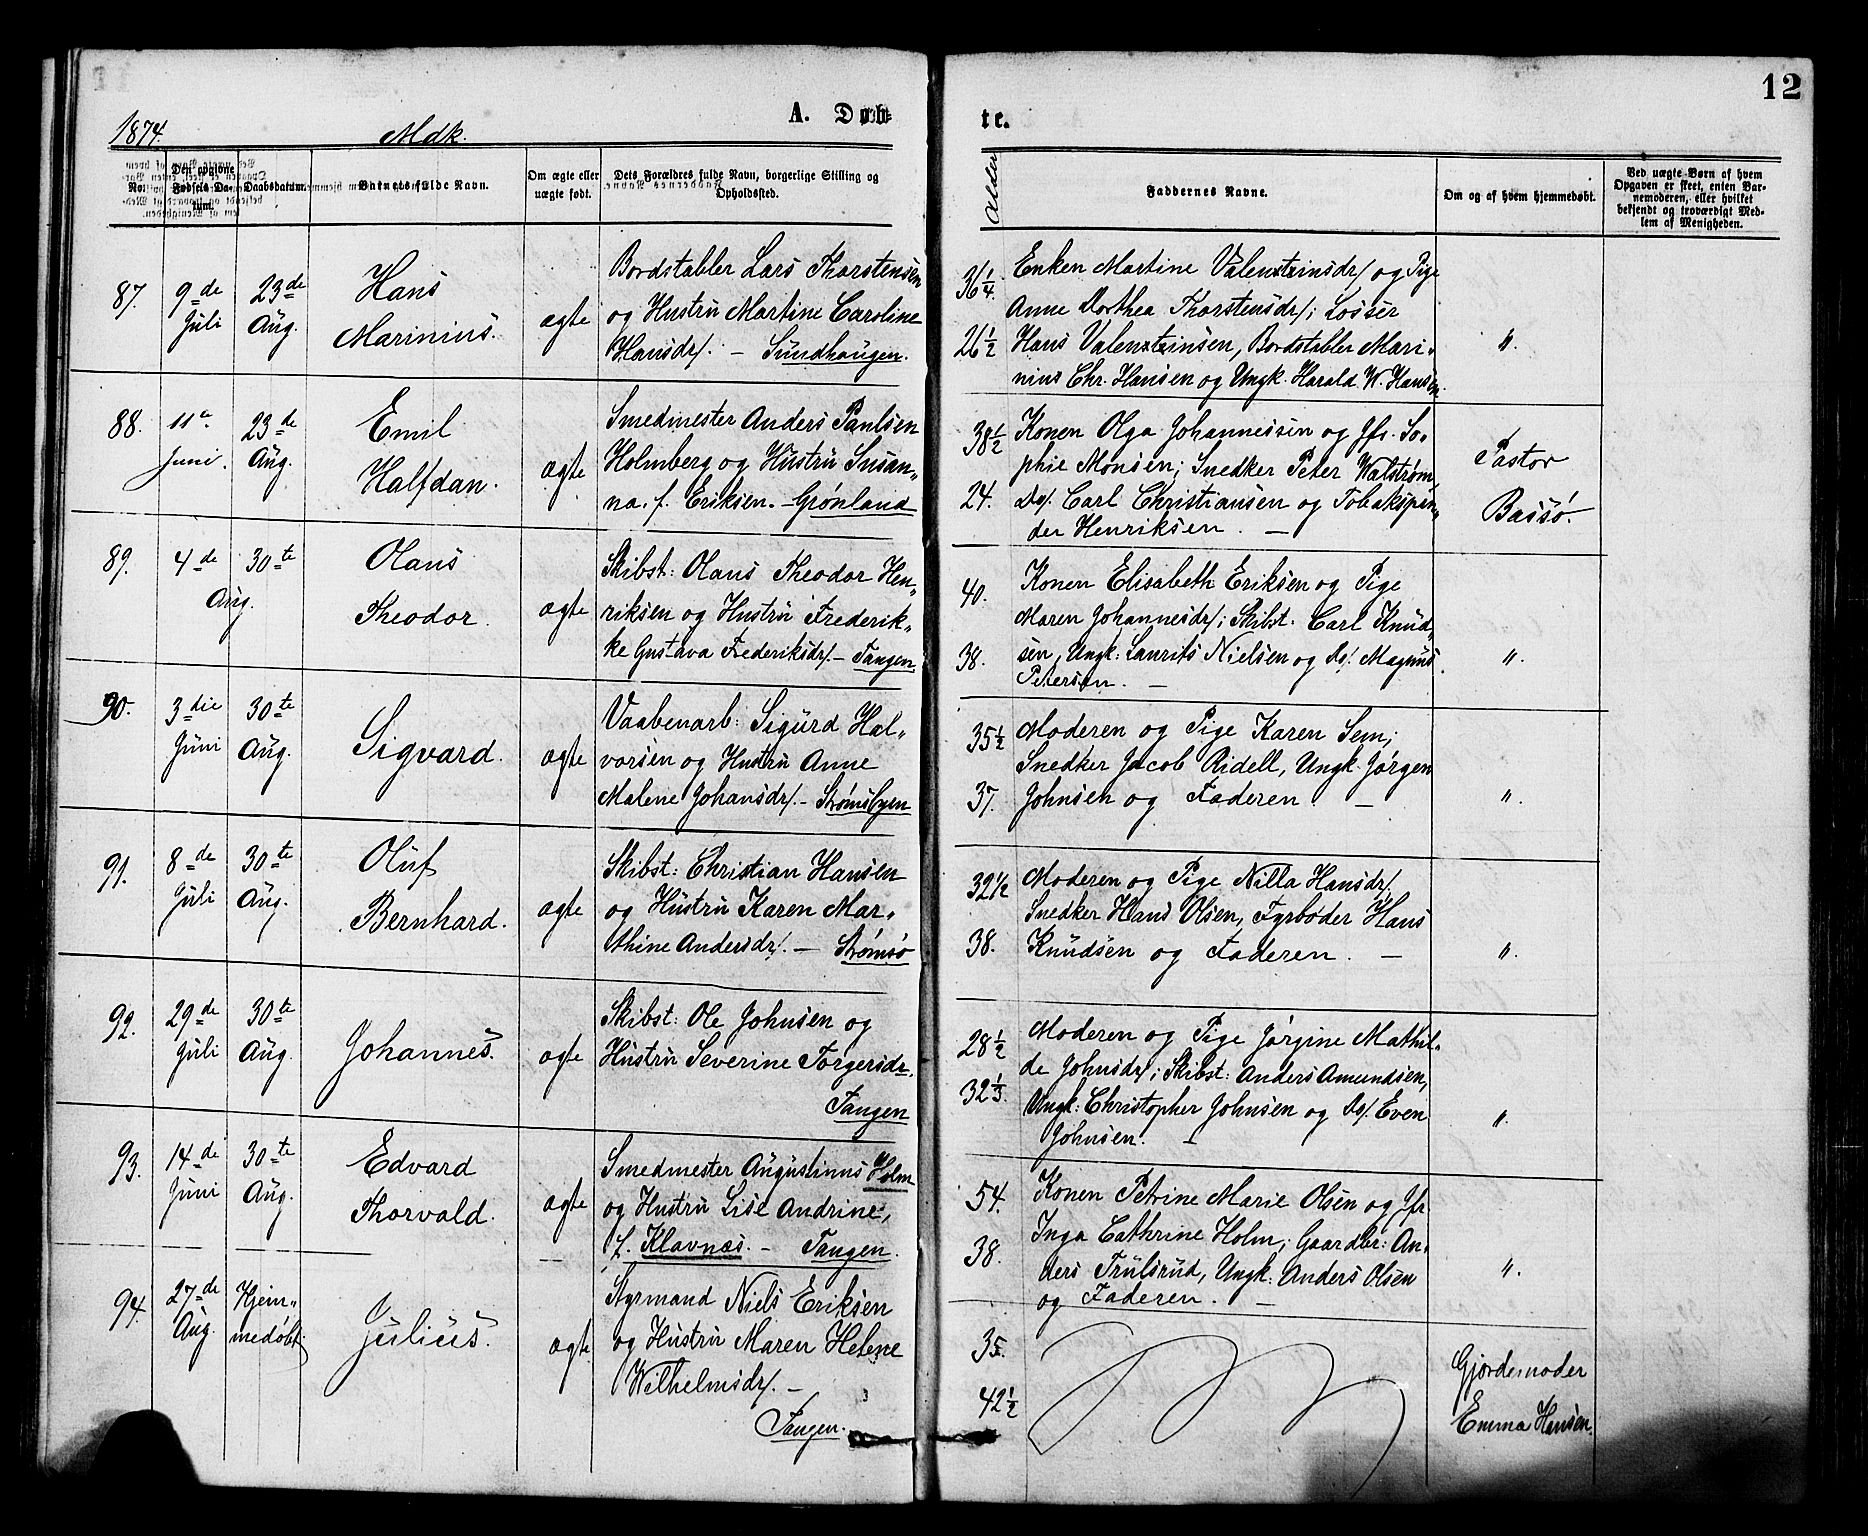 12
1874.
Mdk.
A. Døb-
te.
No.
Den opgivne Fødsels Da-tum.
Daabsdatum.
Barnets fulde Navn.
Om ægte eller uægte født.
Dets Forældres fulde Navn, borgerlige Stilling og Opholdssted.
Alder
Faddernes Navne.
Om og af hvem hjemmedøbt.
Ved uægte Børn af hvem
Opgaven er skeet, enten Bar-
nemoderen, eller hvilket
bekjendt og troværdigt Med-
lem af Menigheden.
87. 9de Juli 23de Aug.
Hans
Marinius.
ægte
Bordstabler Lars Thorstensen
og Hustru Martine Caroline
Hansdr/. — Sundhaugen.
36 1/4.
26 1/2
Enken Martine Valentinsdr/ og Pige
Anne Dorthea Thorstensdr/; Losser
Hans Valentinsen, Bordstabler Mari-
nius Chr. Hansen og Ungk. Harald W. Hansen.
"
88. 11te Juni. 23de Aug.
Emil
Halfdan.
ægte
Smedmester Anders Paulsen
Holmberg og Hustru Susan-
na, f. Eriksen. — Grønland
38 1/2
24.
Konen Olga Johannessen og Jfr. So-
phie Monsen; Snedker Peter Walstrøm,
Do/. Carl Christiansen og Tobakspin-
der Henriksen. —
Pastor
Bassø.
89. 4de 30te Aug.
Olaus
Theodor.
ægte
Skibst: Olaus Theodor Hen-
riksen og Hustru Frederik-
ke Gustava Frederiksdr/. — Tangen.
40.
38.
Konen Elisabeth Eriksen og Pige
Maren Johannesdr/; Skibst. Carl Knud-
sen, Ungk: Laurits Nielsen og Do/. Magnus
Petersen. —
"
90. 3die Juni 30te Aug.
Sigvard.
ægte
Vaabenarb: Sigurd Hal-
vorsen og Hustru Anne
Malene Johansdr/. — Strømsbyen
35 1/2
37.
Moderen og Pige Karen Sem;
Snedker Jacob Ridell, Ungk. Jørgen
Johnsen og Faderen —
"
91. 8de Juli 30te Aug.
Oluf
Bernhard.
ægte
Skibst: Christian Hansen
og Hustru Karen Mar-
thine Andersdr/. — Strømsø
32 1/2
38.
Moderen og Pige Nilla Hansdr/,
Snedker Hans Olsen, Fyrbøder Hans
Knudsen og Faderen. —
"
92. 29de Juli 30te Aug.
Johannes.
ægte
Skibst: Ole Johnsen og
Hustru Severine Torgersdr.
Tangen
28 1/2
32 1/3.
Moderen og Pige Jørgine Mathil-
de Johnsdr/; Skibst: Anders Amundsen,
Ungk: Christopher Johnsen og Do/. Even
Johnsen. —
"
93. 14de Juni 30te Aug.
Edvard
Thorvald.
ægte
Smedmester Augustinus Holm
og Hustru Lise Andrine,
f. Klavnæs. — Tangen.
54.
38.
Konen Petrine Marie Olsen og Jfr
Inga Cathrine Holm; Gaardbr: An-
ders Trulsrud, Ungk: Anders Olsen
og Faderen. —
"
94. 27de Aug. Hjem-
medøbt.
Julius.
ægte.
Styrmand Niels Eriksen
og Hustru Maren Helene
Wilhelmsdr/. —
Tangen.
35.
42 1/2
Gjordemoder
Emma Hansen.